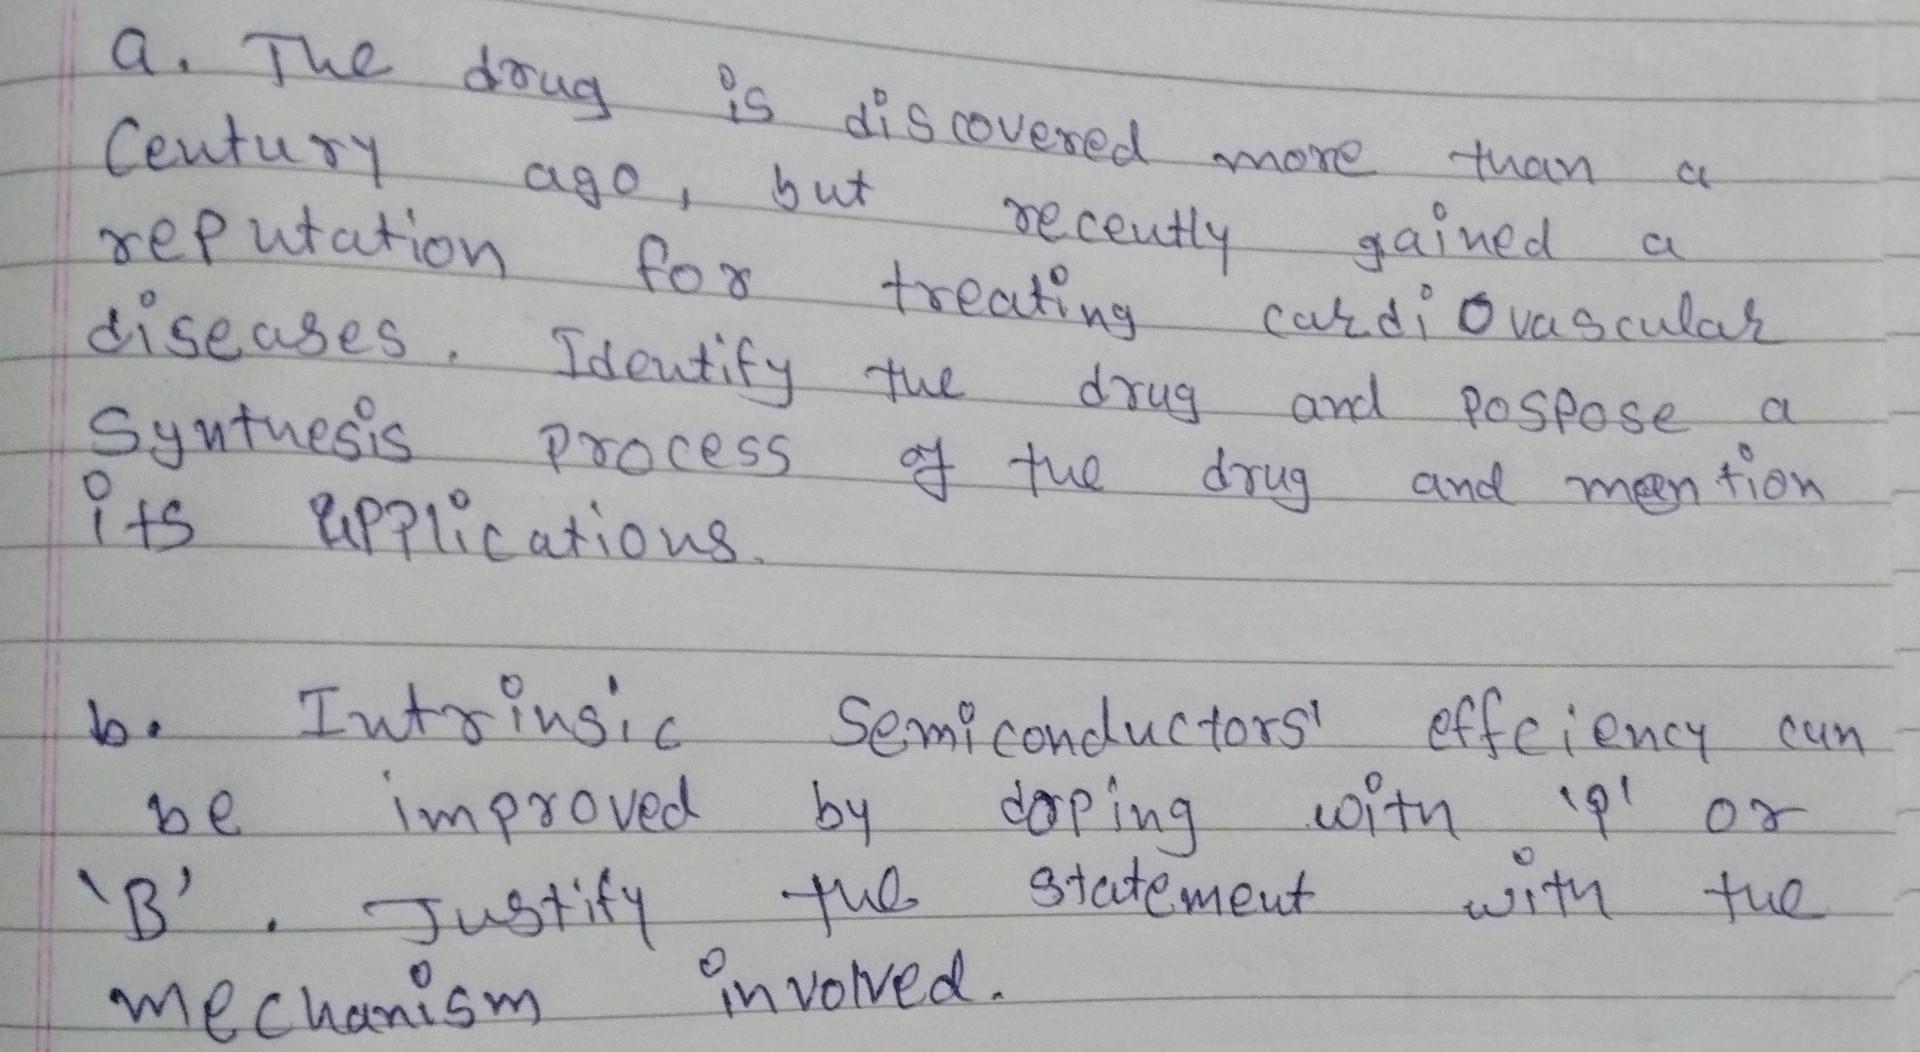 a. The drug is discovered more than a
Century ago, but recently gained a
reputation for treating cardiovascular
diseases. Identify the drug and pospose a
Synthesis process of the drug and meention
its applications.
b. Intrinsic Semiconductors' effciency can
be improved by doping with 'P' or
'B'. Justify the statement with the
mechanism involved.